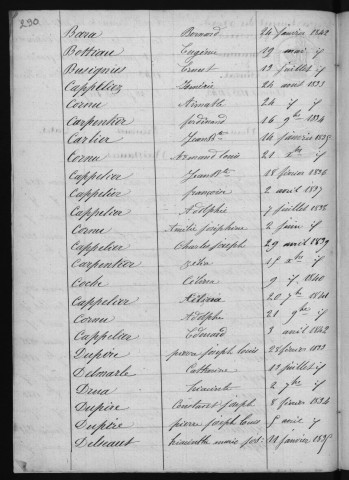 290
Bara Bernard 24 janvier 1842
Bottiau Eugène 29 mai if
Busignies Ernest 13 juillet if
Cappeliez 24 aout 1823
Cornu Aimable 24 if if
Carpentier ferdinand 16 9bre 1824
Carlier Jean Bte 14 février 1825
Cornu Armand Louis 21 Xbre if
Cappelier Jean Bte 18 février 1826
Cappelier françoise 2 avril 1827
Cappelier Adolphe 7 juillet 1828
Cornu Aimée Joséphine 2 juin if
Cappelier Charles Joseph 29 avril 1829
Carpentier Zélie 17 Xbre if
Coche Célina 9 if 1840
Cappelier 20 7bre 1841
Cornu Adolphe 21 9bre if
Cappelier Edouard 3 avril 1842
Dupire pierre Joseph Louis 28 février 1823
Delwarle Catherine 13 juillet if
Drua 2 7bre if
Dupire Constant Joseph 8 février 1824
Dupire pierre Joseph Louis 8 avril if
Delsaut hiacinthe marie 21 janvier 1825